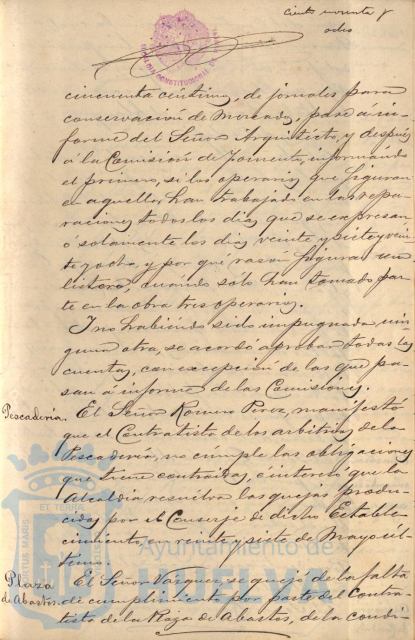 ciento noventa y
ocho
cincuenta céntimos, de jornales para
conservacion de Mercados, pase á in-
forme del Señor Arquitecto, y despues
á la Comision de Fomento, informando
el primero, si los operarios que figuran
en aquellos, han trabajado en las repa-
raciones todos los dias que se expresan
ó solamente los dias veinte y siete y vein-
te y ocho, y por qué razon figura un
listero, cuando sólo han tomado par-
te en la obra tres operarios.
Y no habiendo sido impugnada nin
guna otra, se acordó aprobar todas las
cuentas, con excepcion de las que pa-
san á informe de las Comisiones.
Pescadería. El Señor Romero Perez, manifestó
que el Contratista de los arbitrios de la
Pescadería, no cumple las obligaciones
que tiene contraidas, é interesó que la
Alcaldía resuelva las quejas produ-
cidas por el Conserje de dicho Estable-
cimiento, en veinte y siete de Mayo úl-
timo.
Plaza de Abastos. El Señor Vazquez, se quejó de la falta
de cumplimiento por parte del Contra-
tista de la Plaza de Abastos, de la condi-
Ayuntamiento de
HUELVA